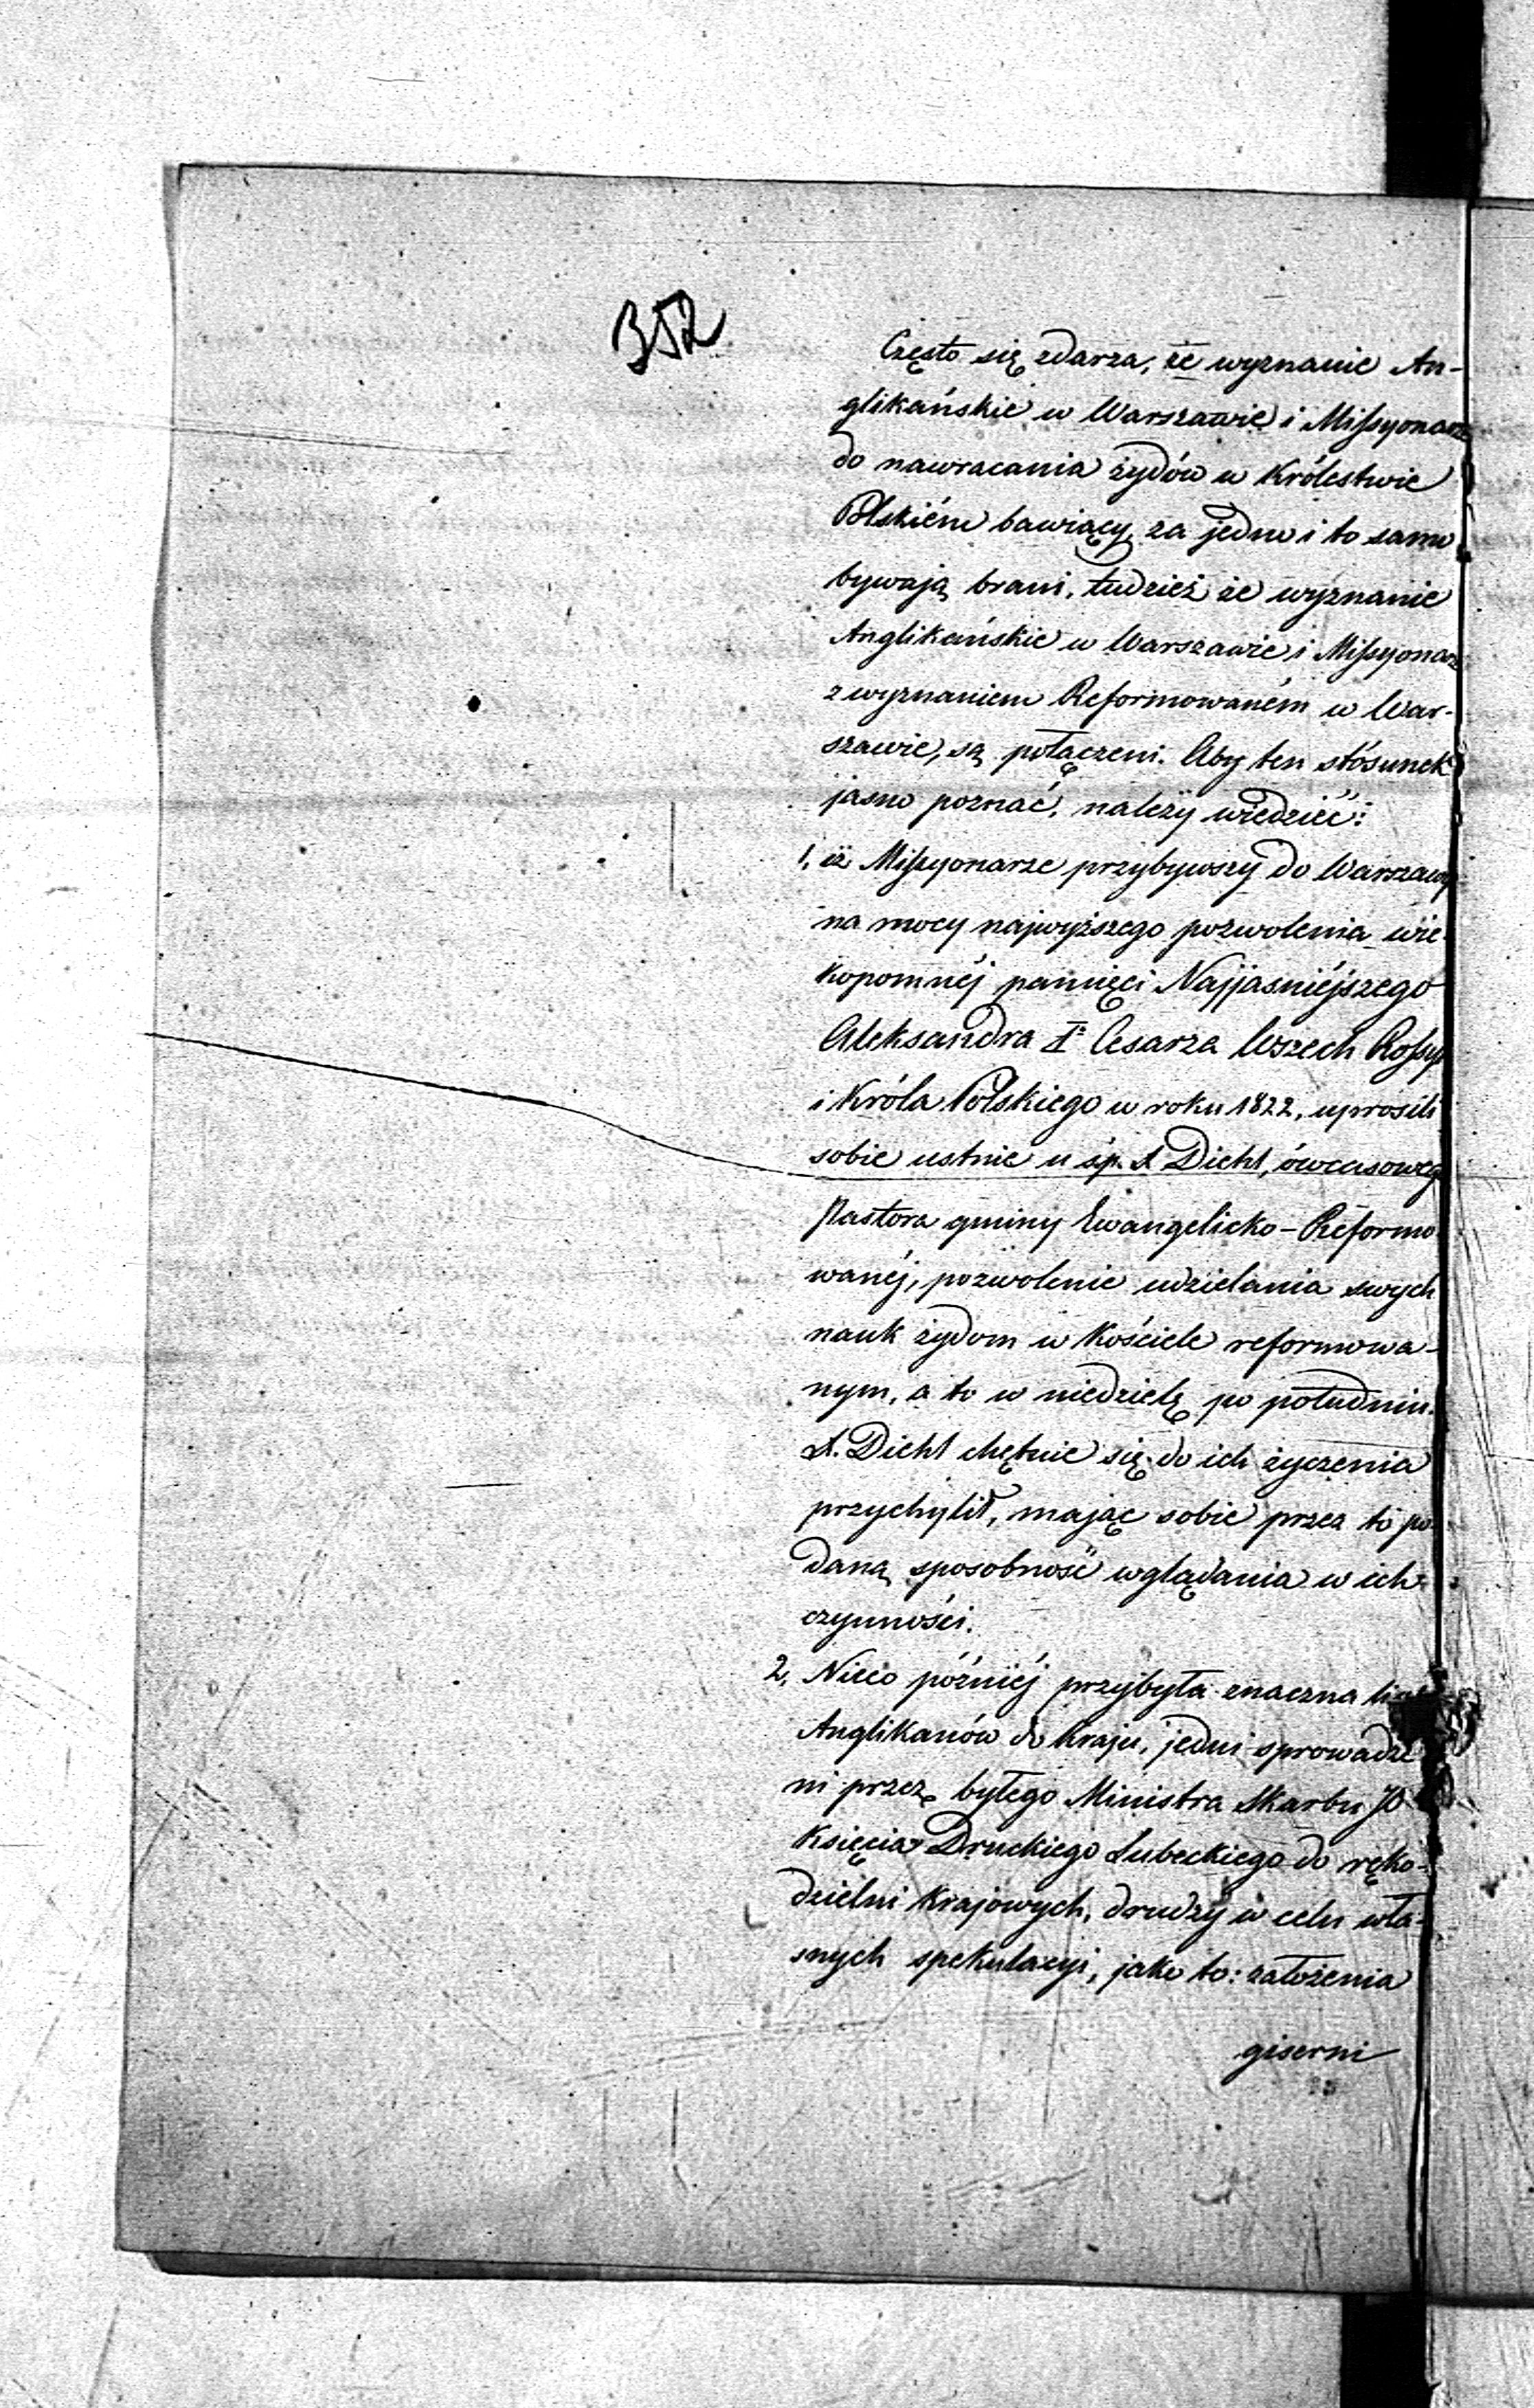 352
Często się zdarza, że wyznanie An-
glikańskie w Warszawie i Missyonarze
do nawracania żydów w Królestwie
Polskiém bawiący, za jedno i to samo
bywają brani, tudzież że wyznanie
Anglikańskie w Warszawie i Missyonarze
z wyznaniem Reformowaném w War-
szawie, są połączeni. Aby ten stósunek
jasno poznać, należy wiedzieć:
1, iż Missyonarze przybywszy do Warszawy
na mocy najwyższego pozwolenia wie-
kopomnéj pamięci Najjaśniéjszego
Aleksandra I° Cesarza Wszech Rossyi
i Króla Polskiego w roku 1822, uprosili
sobie ustnie u śp. X Diehl, ówczasowego
Pastora gminy Ewangelicko-Reformo
wanéj, pozwolenie udzielania swych
nauk żydom w Kościele reformowa-
nym, a to w niedzielę po południu.
X. Diehl chętnie się do ich życzenia
przychylił, mając sobie przez to po
daną sposobność wglądania w ich
czynności.
2, Nieco późniéj przybyła znaczna
Anglikanów do Kraju, jedni sprowadze
ni przez byłego Ministra Skarbu JO
Księcia Druckiego Lubeckiego do ręko-
dzielni Krajowych, drudzy w celu wła-
snych spekulacyi, jako to: założenia
giserni